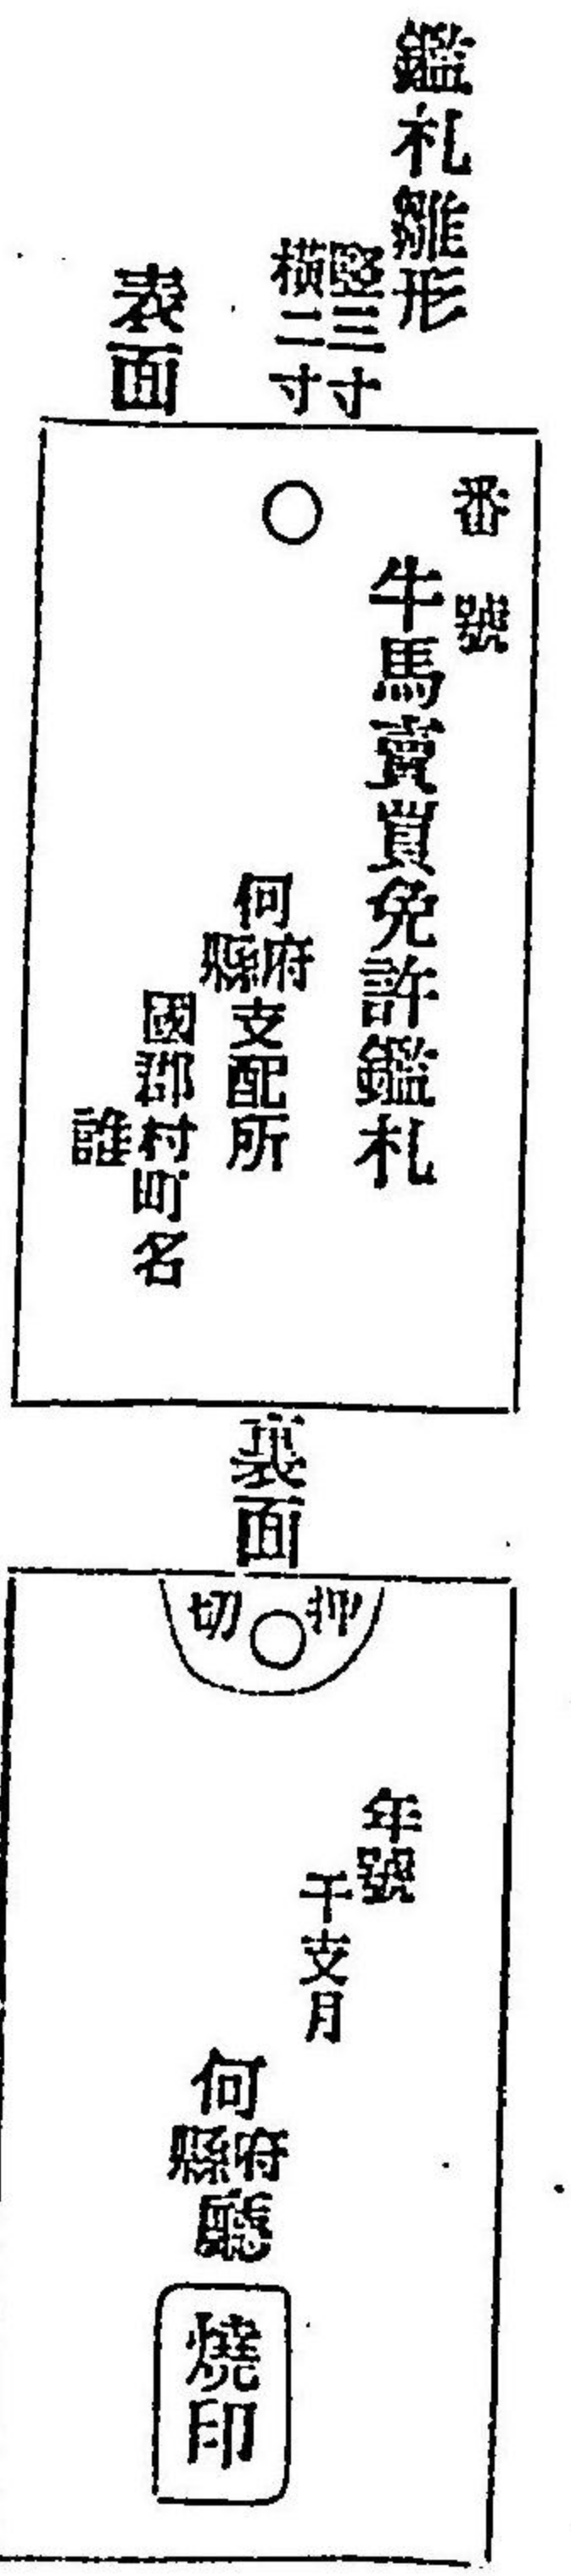 鑑札雛形
竪三寸
横二寸
表面
番號
牛馬賣買免許鑑札
何府縣支配所
國郡村町名
誰
裏面
押切
年號
干支月
何府縣廳
燒印